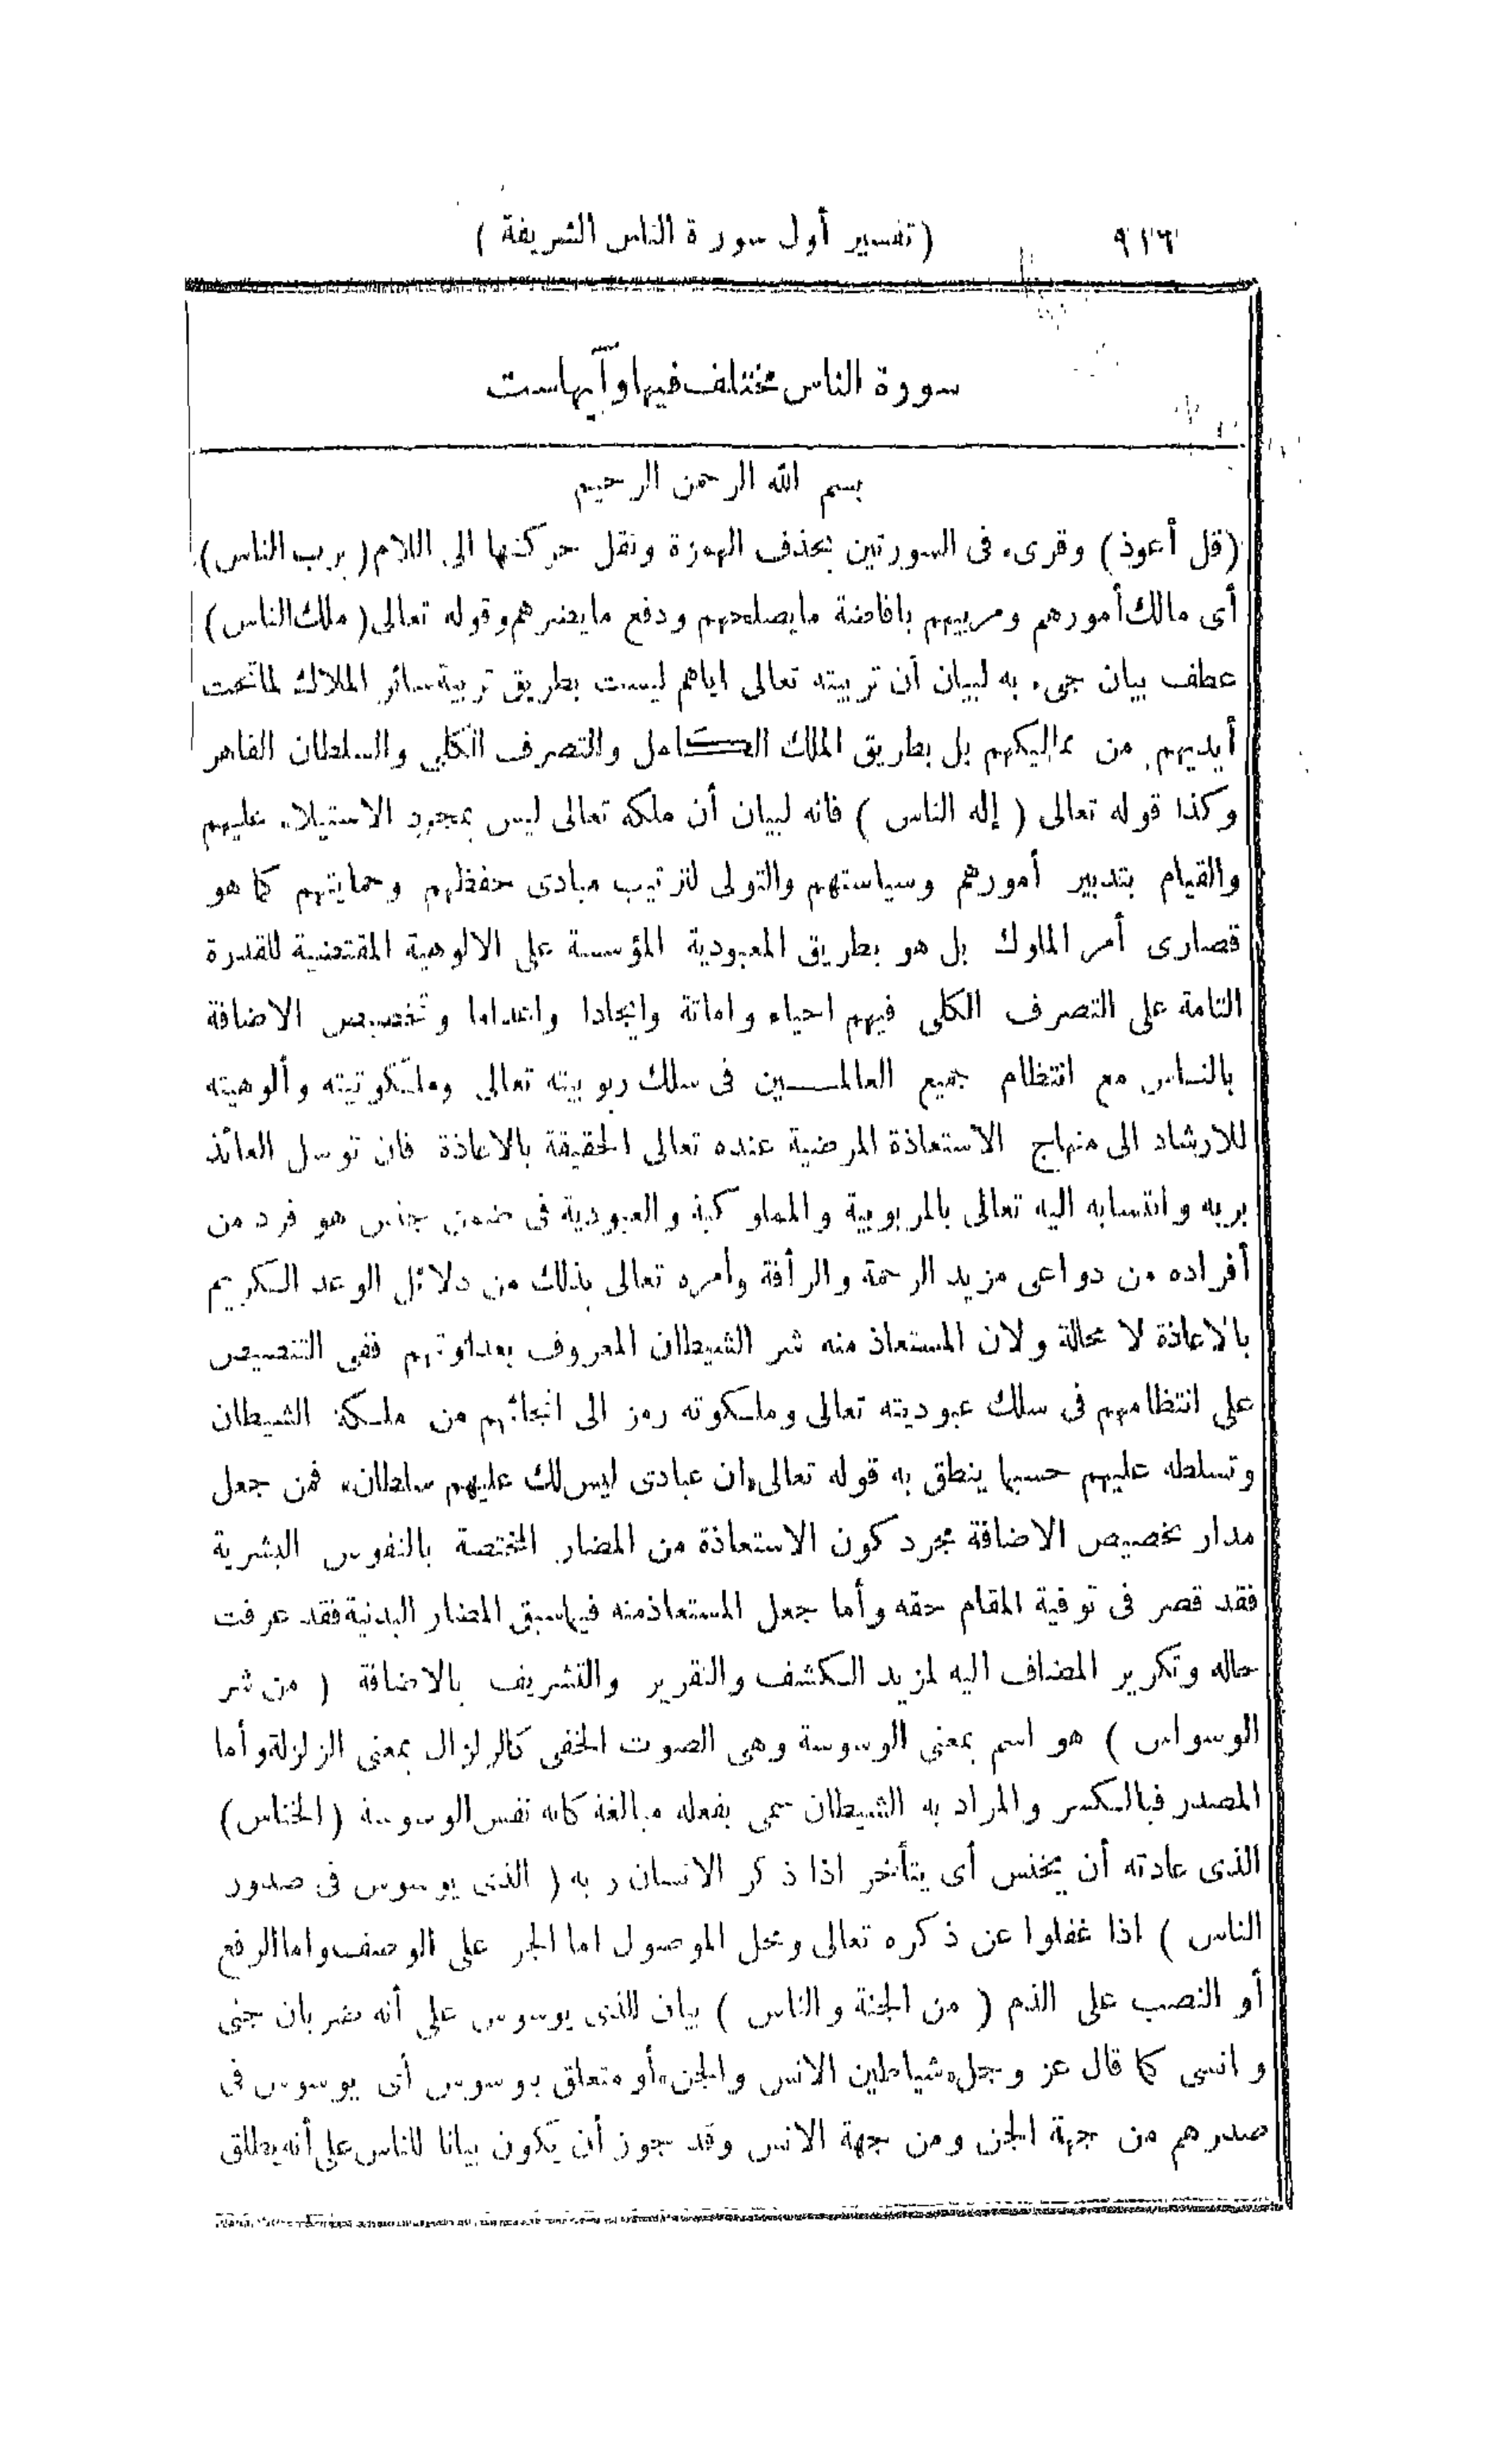 ٩١٦
(تفسير أول سورة الناس الشريفة)
سورة الناس مختلف فيها وآيها ست
بسم الله الرحمن الرحيم
(قل أعوذ) وقرىء فى السورتين بحذف الهمزة ونقل حركتها الى اللام (برب الناس)
أى مالك أمورهم ومربيهم بافاضة ما يصلحهم ودفع ما يضرهم وقوله تعالى (ملك الناس)
عطف بيان جىء به لبيان أن تربيته تعالى اياهم ليست بطريق تربية سائر الملاك لما تحت
أيديهم من مماليكهم بل بطريق الملك الكامل والتصرف الكلى والسلطان القاهر
وكذا قوله تعالى (إله الناس) فانه لبيان أن ملكه تعالى ليس بمجرد الاستيلاء عليهم
والقيام بتدبير أمورهم وسياستهم والتولى لترتيب مبادى حفظهم وحمايتهم كما هو
قصارى أمر الملوك بل هو بطريق المعبودية المؤسسة على الالوهية المقتضية للقدرة
التامة على التصرف الكلى فيهم احياء واماتة وايجادا واعداما وتخصيص الاضافة
بالناس مع انتظام جميع العالمين فى سلك ربوبيته تعالى وملكوتيته وألوهيته
للارشاد الى منهاج الاستعاذة المرضية عنده تعالى الحقيقة بالاعاذة فان توسل العائذ
بربه وانتسابه اليه تعالى بالمربوبية والمملوكية والعبودية فى ضمن جنس هو فرد من
أفراده من دواعى مزيد الرحمة والرأفة وأمره تعالى بذلك من دلائل الوعد الكريم
بالاعاذة لا محالة ولان المستعاذ منه شر الشيطان المعروف بعداوتهم ففى التنصيص
على انتظامهم فى سلك عبوديته تعالى وملكوته رمز الى انجائهم من ملكة الشيطان
وتسلطه عليهم حسبما ينطق به قوله تعالى «ان عبادى ليس لك عليهم سلطان» فمن جعل
مدار تخصيص الاضافة مجرد كون الاستعاذة من المضار المختصة بالنفوس البشرية
فقد قصر فى توفية المقام حقه وأما جعل المستعاذ منه فيما سبق المضار البدنية فقد عرفت
حاله وتكرير المضاف اليه لمزيد الكشف والتقرير والتشريف بالاضافة (من شر
الوسواس) هو اسم بمعنى الوسوسة وهى الصوت الخفى كالزلزال بمعنى الزلزلة وأما
المصدر فبالكسر والمراد به الشيطان سمى بفعله مبالغة كانه نفس الوسوسة (الخناس)
الذى عادته أن يخنس أى يتأخر اذا ذكر الانسان ربه (الذى يوسوس فى صدور
الناس) اذا غفلوا عن ذكره تعالى ومحل الموصول اما الجر على الوصف واما الرفع
أو النصب على الذم (من الجنة والناس) بيان للذى يوسوس على أنه ضربان جنى
وانسى كما قال عز وجل «شياطين الانس والجن» أو متعلق بوسوس أى يوسوس فى
صدرهم من جهة الجن ومن جهة الانس وقد جوز أن يكون بيانا للناس على أنه يطلق